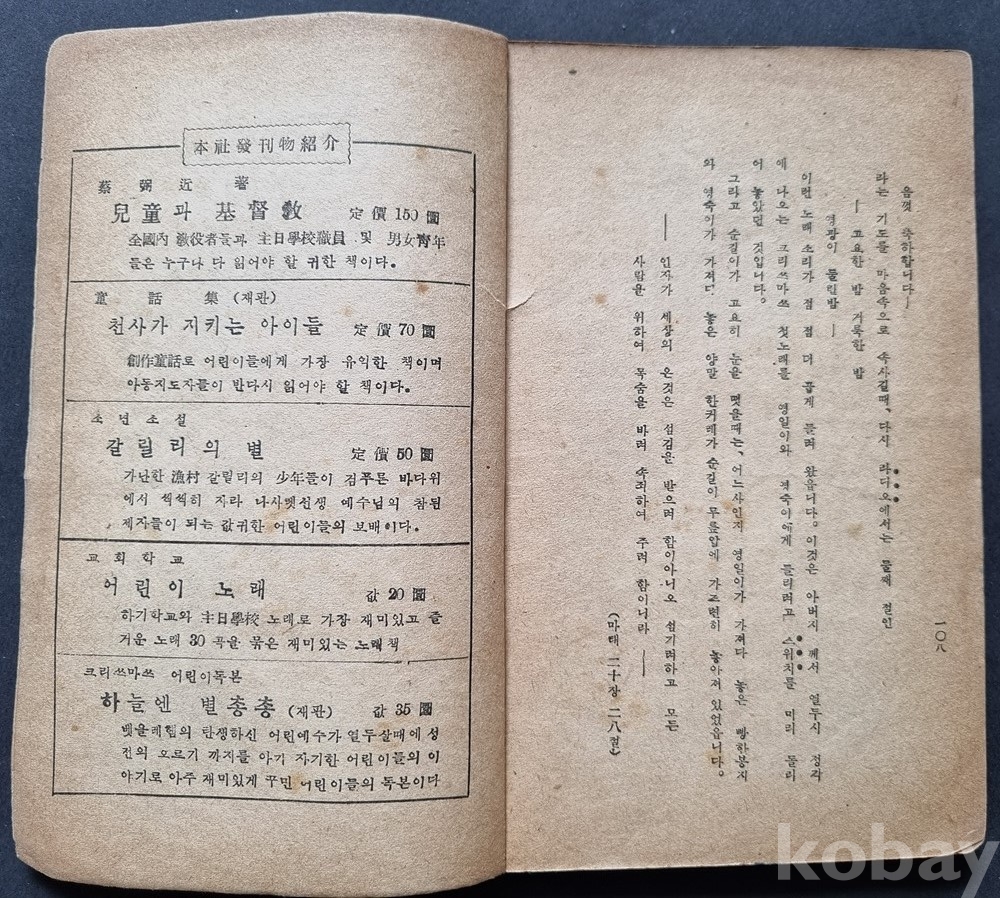 本社發刊物紹介
蔡弼近 著
兒童과 基督敎 定價 150圓
全國內 敎役者들과 主日學校職員 및 男女靑年
들은 누구나 다 읽어야 할 귀한 책이다.
童話集 (재판)
천사가 지키는 아이들 定價 70圓
創作童話로 어린이들에게 가장 유익한 책이며
아동지도자들이 반다시 읽어야 할 책이다.
소년소설
갈릴리의 별 定價 50圓
가난한 漁村 갈릴리의 少年들이 검푸른 바다위
에서 씩씩히 자라 나사렛선생 예수님의 참된
제자들이 되는 값귀한 어린이들의 보배이다.
교회학교
어린이 노래 값 20圓
하기학교와 主日學校 노래로 가장 재미있고 즐
거운 노래 30曲을 묶은 재미있는 노래책
크리쓰마쓰 어린이독본
하늘엔 별총총 (재판) 값 35圓
벳을레헴의 탄생하신 어린예수가 열두살때에 성
전의 오르기 까지를 아기 자기한 어린이들의 이
야기로 아주 재미있게 꾸민 어린이들의 독본이다
一〇八
음껏 축하합니다—
라는 기도를 마음속으로 속사길때, 다시 라디오에서는 둘째 절인
—고요한 밤 거룩한 밤
영광이 둘린밤—
이런 노래 소리가 점 점 더 곱게 들려 왔읍니다. 이것은 아버지 께서 열두시 정각
에 나오는 크리쓰마쓰 첫노래를 영일이와 경숙이에게 들리려고 스위치를 미리 돌리
어 놓았던 것입니다.
그라고 순길이가 고요히 눈을 떳을때는, 어느사인지 영일이가 가져다 놓은 빵한봉지
와 경숙이가 가져다 놓은 양말 한커레가 순길이 무릎압에 가즈런히 놓아져 있었읍니다.
—— 인자가 세상의 온것은 섬김을 받으려 함이아니오 섬기려하고 모든
사람을 위하여 목숨을 바려 속죄하여 주려 함이니라 ——
(마태 二十장 二八절)
kobay